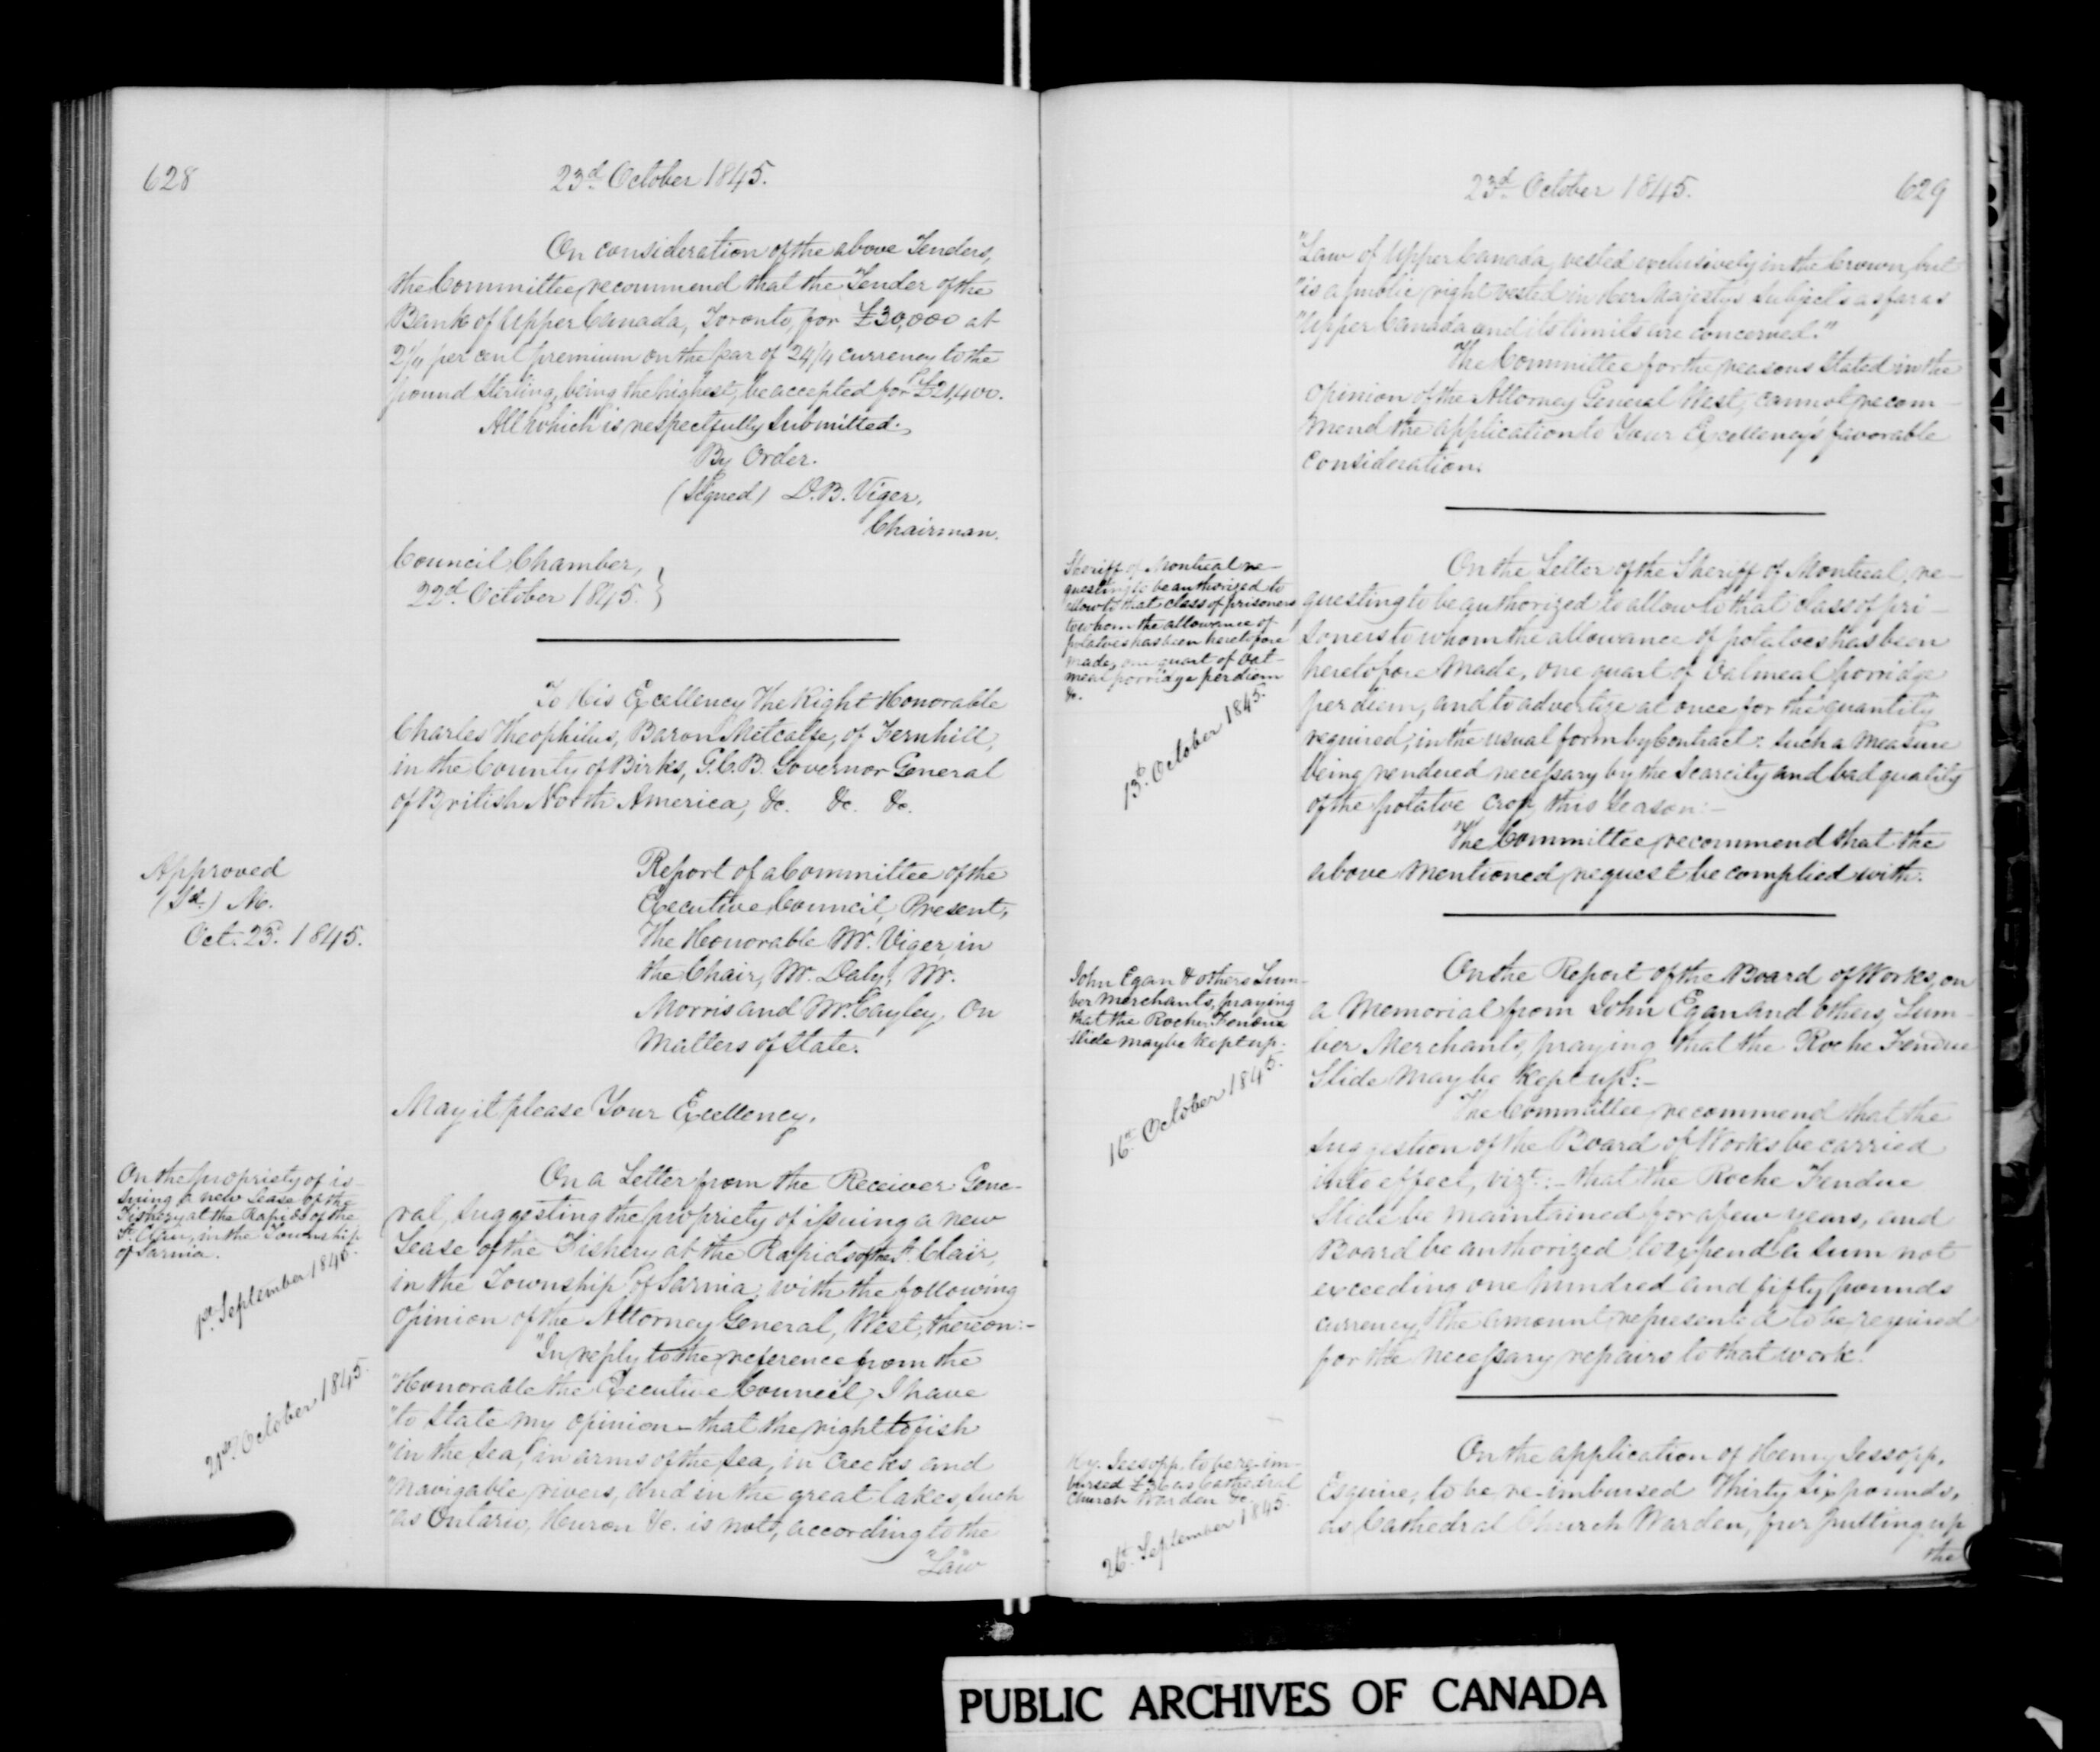 628
23d. October 1845.
On consideration of the above Tenders,
the Committee recommend that the Tender of the
Bank of Upper Canada, Toronto, for £30,000 at
2 1/4 per cent premium on the par of 24/4 currency to the
pound Sterling, being the highest, be accepted for £21,400.
All which is respectfully submitted.
By Order.
(Signed) D.B. Viger,
Chairman.
Council Chamber,
22d. October 1845. }
To His Excellency The Right Honorable
Charles Theophilus, Baron Metcalfe, of Fernhill,
in the County of Birks, G.C.B. Governor General
of British North America, &c. &c. &c.
Approved
(Sd.) M.
Oct. 23d. 1845.
Report of a Committee of the
Executive Council, Present,
The Honorable Mr. Viger, in
the Chair, Mr. Daly, Mr.
Morris and Mr. Cayley, On
Matters of State.
May it please Your Excellency,
On the propriety of is-
suing a new Lease of the
Fishery at the Rapids of the
St. Clair, in the Township
of Sarnia.
1st. September 1845.
21st. October 1845.
On a Letter from the Receiver Gene-
ral, suggesting the propriety of issuing a new
Lease of the Fishery at the Rapids of the St. Clair,
in the Township of Sarnia, with the following
Opinion of the Attorney General, West, thereon:-
"In reply to the reference from the
"Honorable the Executive Council, I have
"to state my opinion - that the right to fish
"in the sea, in arms of the sea, in Creeks and
"Navigable rivers, and in the great lakes, such
"as Ontario, Huron &c. is not, according to the
"Law
23d. October 1845.
629
"Law of Upper Canada, vested exclusively in the Crown, but
"is a public right vested in Her Majesty's subjects as far as
"Upper Canada and its limits are concerned."
The Committee for the reasons stated in the
Opinion of the Attorney General West, cannot recom-
mend the application to Your Excellency's favorable
consideration.
Sheriff of Montreal re-
questing to be authorized to
allow to that class of prisoners
to whom the allowance of
potatoes has been heretofore
made, one quart of Oat-
meal porridge per diem
&c.
13th. October 1845.
On the Letter of the Sheriff of Montreal, re-
questing to be authorized to allow to that class of pri-
soners to whom the allowance of potatoes has been
heretofore made, one quart of Oatmeal porridge
per diem, and to advertize at once for the quantity
required, in the usual form by Contract: such a measure
being rendered necessary by the scarcity and bad quality
of the potatoe crop this season:-
The Committee recommend that the
above mentioned request be complied with.
John Egan & others Lum-
ber Merchants, praying
that the Roche Fendue
Slide may be kept up.
16th. October 1845.
On the Report of the Board of Works, on
a Memorial from John Egan and others, Lum-
ber Merchants, praying that the Roche Fendue
Slide may be kept up:-
The Committee recommend that the
suggestion of the Board of Works be carried
into effect, vizt:- that the Roche Fendue
Slide be maintained for a few years, and
Board be authorized to expend a sum not
exceeding one hundred and fifty pounds
currency, the amount represented to be required
for the necessary repairs to that work.
Hy. Jessopp, to be re-im-
bursed £36 as Cathedral
Church Warden &c.
26th. September 1845.
On the application of Henry Jessopp,
Esquire, to be re-imbursed Thirty Six pounds,
as Cathedral Church Warden, for putting up
the
PUBLIC ARCHIVES OF CANADA